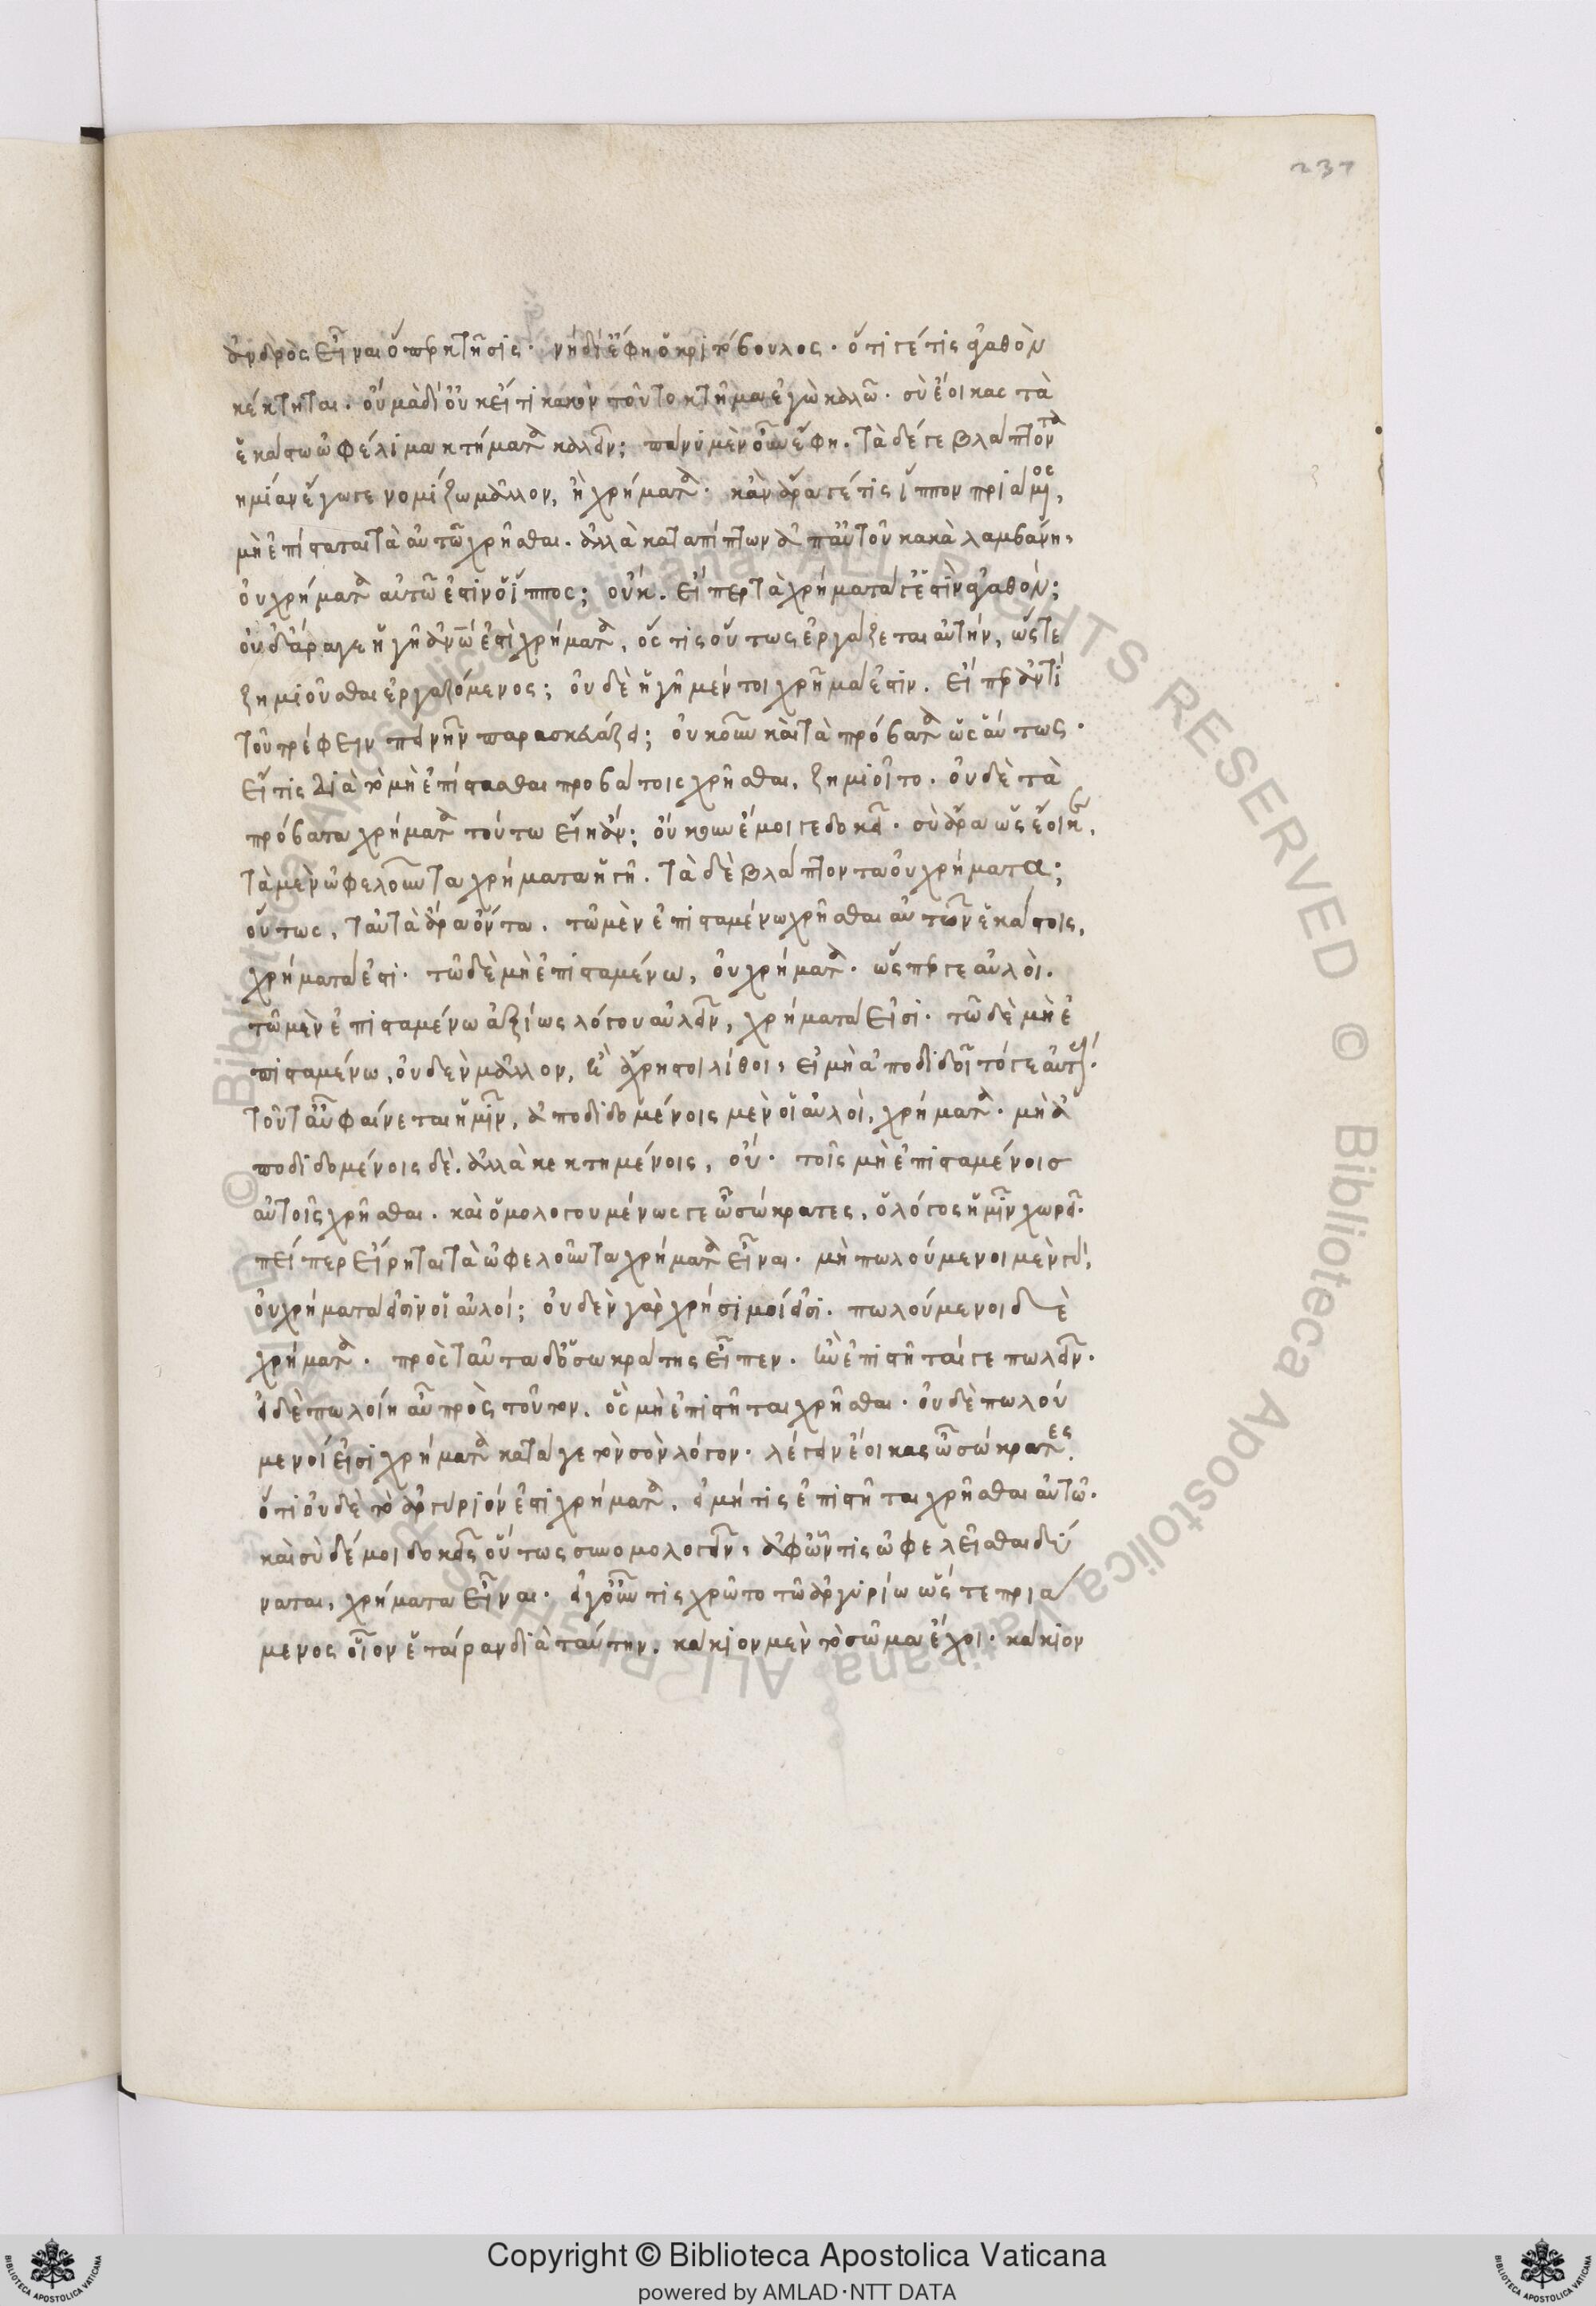 237
ἀνδρὸς εἶναι ὅπερ κτῆσις· νὴ δί ἔφη ὁ κριτόβουλος· ὅτι γέ τις ἀγαθὸν
κέκτηται. οὐ μὰ δί οὐκ εἴ τι κακὸν τοῦτο κτῆμα ἐγὼ καλῶ. σὺ ἔοικας τὰ
ἑκάστω ὠφέλιμα κτήματα καλεῖν; πάνυ μὲν οὖν ἔφη. τὰ δέ γε βλάπτοντα
ζημίαν ἔγωγε νομίζω μᾶλλον, ἢ χρήματα· κἂν ἄρα γέ τις ἵππον πριάμενος,
μὴ ἐπίσταται τὰ αὐτῶ χρῆσθαι. ἀλλὰ καταπίπτων ἀπ αὐτοῦ κακὰ λαμβάνη,
οὐ χρήματα αὐτῶ ἐστὶν ὁ ἵππος; οὐκ. εἴπερ τὰ χρήματά γ ἐστὶν ἀγαθόν;
οὐδ ἄρα γε ἡ γῆ ἀνθρώπω ἐστὶ χρήματα, ὅς τις οὕτως ἐργάζεται αὐτὴν, ὥστε
ζημιοῦσθαι ἐργαζόμενος; οὐδὲ ἡ γῆ μέντοι χρῆμά ἐστιν. εἴπερ ἀντὶ
τοῦ τρέφειν πεινῆν παρασκευάζει; οὐκοῦν καὶ τὰ πρόβατα ὡσαύτως·
εἴ τις διὰ τὸ μὴ ἐπίστασθαι προβάτοις χρῆσθαι, ζημιοῖτο. οὐδὲ τὰ
πρόβατα χρήματα τούτω εἴη ἄν; οὔκουν ἔμοιγε δοκεῖ· σὺ ἄρα ὡς ἔοικε,
τὰ μὲν ὠφελοῦντα χρήματα ἡγῆ. τὰ δὲ βλάπτοντα οὐ χρήματα;
οὕτως. ταὐτὰ ἄρα ὄντα, τῶ μὲν ἐπισταμένω χρῆσθαι αὐτῶν ἑκάστοις,
χρήματά ἐστι· τῶ δὲ μὴ ἐπισταμένω, οὐ χρήματα· ὥσπερ γε αὐλοὶ.
τῶ μὲν ἐπισταμένω ἀξίως λόγου αὐλεῖν, χρήματά εἰσι· τῶ δὲ μὴ ἐ
πισταμένω, οὐδὲν μᾶλλον, ἢ ἄχρηστοι λίθοι, εἰ μὴ ἀποδιδοῖτό γε αὐτούς·
τοῦτ αὖ φαίνεται ἡμῖν, ἀποδιδομένοις μὲν οἱ αὐλοὶ, χρήματα· μὴ ἀ
ποδιδομένοις δὲ, ἀλλὰ κεκτημένοις, οὐ· τοῖς μὴ ἐπισταμένοισ
αὐτοῖς χρῆσθαι. καὶ ὁμολογουμένως γε ὦ σώκρατες, ὁ λόγος ἡμῖν χωρεῖ·
πείπερ εἴρηται τὰ ὠφελοῦντα χρήματα εἶναι. μὴ πωλούμενοι μὲν γὰρ,
οὐ χρήματά εἰσιν οἱ αὐλοί; οὐδὲν γὰρ χρήσιμοί εἰσι. πωλούμενοι δὲ
χρήματα. πρὸς ταῦτα δ ὁ σωκράτης εἶπεν. ἢν ἐπίστηταί γε πωλεῖν·
εἰ δὲ πωλοίη αὖ πρὸς τοῦτον, ὃς μὴ ἐπίστηται χρῆσθαι. οὐδὲ πωλού
μενοί εἰσι χρήματα κατά γε τὸν σὸν λόγον. λέγειν ἔοικας ὦ σώκρατες,
ὅτι οὐδὲ τὸ ἀργύριόν ἐστι χρήματα, εἰ μή τις ἐπίστηται χρῆσθαι αὐτῶ.
καὶ σὺ δέ μοι δοκεῖς οὕτως συνομολογεῖν, ἀφ ὧν τις ὠφελεῖσθαι δύ
ναται, χρήματα εἶναι. εἰ γοῦν τις χρῶτο τῶ ἀργυρίω ὥστε πριά
μενος οἷον ἑταίραν διὰ ταύτην, κάκιον μὲν τὸ σῶμα ἔχοι. κάκιον
© Biblioteca Apostolica Vaticana ALL RIGHTS RESERVED © Biblioteca Apostolica Vaticana ALL RIGHTS RESERVED
Copyright © Biblioteca Apostolica Vaticana
powered by AMLAD·NTT DATA
BIBLIOTECA APOSTOLICA VATICANA
BIBLIOTECA APOSTOLICA VATICANA